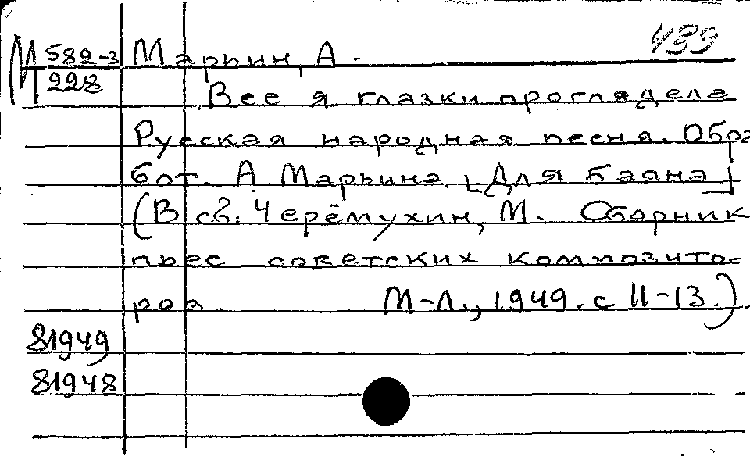 439
М 582-3 Марьин, А.
228 Все я глазки проглядела
Русская народная песня. Обра
бот. А Марьина. [Для баяна]
(В сб. Черёмухин, М. Сборник
пьес советских композито-
ров М-Л., 1949. с 11-13.)
81949
81948